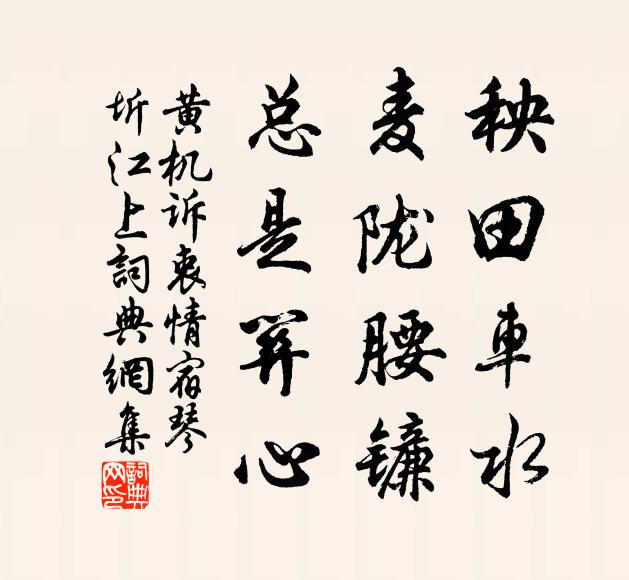 秧田車水
麦陇腰镰
总是关心
黄机诉衷情宿琴
圻江上詞典網集
詞典网印